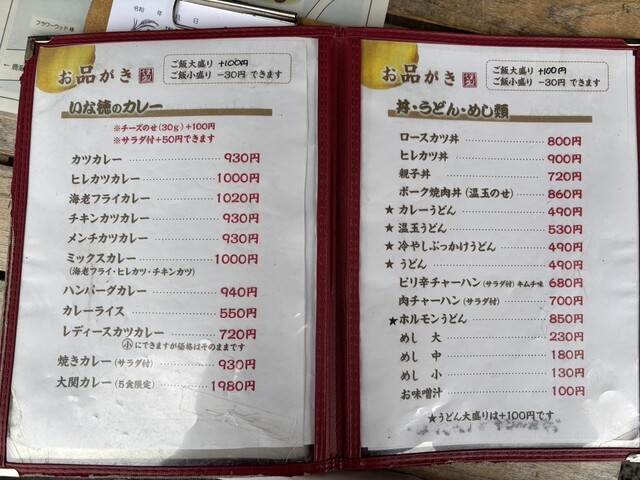 フラワーウッド様
令和 年 月 日
お品がき
ご飯大盛り +100円
ご飯小盛り -30円 できます
いな穂のカレー
※チーズのせ(30g)+100円
※サラダ付+50円できます
カツカレー 930円
ヒレカツカレー 1000円
海老フライカレー 1020円
チキンカツカレー 930円
メンチカツカレー 930円
ミックスカレー 1000円
(海老フライ・ヒレカツ・チキンカツ)
ハンバーグカレー 940円
カレーライス 550円
レディースカツカレー 720円
小にできますが価格はそのままです
焼きカレー(サラダ付) 930円
大関カレー(5食限定) 1980円
お品がき
ご飯大盛り +100円
ご飯小盛り -30円 できます
丼・うどん・めし類
ロースカツ丼 800円
ヒレカツ丼 900円
親子丼 720円
ポーク焼肉丼(温玉のせ) 860円
★カレーうどん 490円
★温玉うどん 530円
★冷やしぶっかけうどん 490円
★うどん 490円
ピリ辛チャーハン(サラダ付)キムチ味 680円
肉チャーハン(サラダ付) 700円
★ホルモンうどん 850円
めし 大 230円
めし 中 180円
めし 小 130円
お味噌汁 100円
★うどん大盛りは+100円です